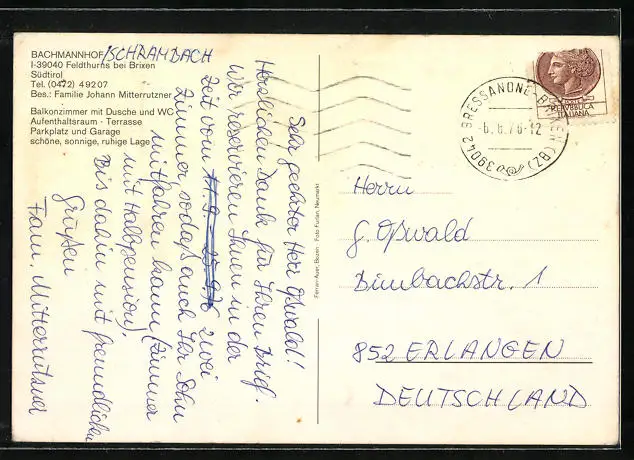 BACHMANNHOF/SCHRAMBACH
I-39040 Feldthurns bei Brixen
Südtirol
Tel. (0472) 49207
Bes.: Familie Johann Mitterrutzner
Balkonzimmer mit Dusche und WC
Aufenthaltsraum - Terrasse
Parkplatz und Garage
schöne, sonnige, ruhige Lage
Sehr geehrter Herr Oßwald!
Herzlichen Dank für Ihren Brief.
Wir reservieren Ihnen in der
Zeit vom zwei
Zimmer sodaß auch Ihr Sohn
mitfahren kann (Zimmer
mit Halbpension),
Bis dahin mit freundlichen
Grüßen
Fam. Mitterrutzner
Ferrari-Auer, Bozen - Foto Furlan, Neumarkt
39042 BRESSANONE-BRIXEN (BZ)
-6.8.76-12
REPUBBLICA
ITALIANA
Herrn
G. Oßwald
Bimbachstr. 1
852 ERLANGEN
DEUTSCHLAND